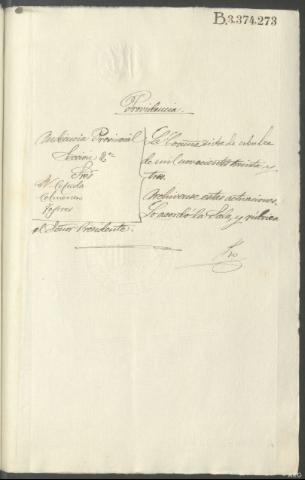 B.3.374.273
Providencia
Audiencia Provincial
Sección 2ª
Sres
Cepeda
Colmenar
La Coruña siete de octubre
de mil novecientos treinta y
tres.
Archívense estas actuaciones.
Lo acordó la Sala, y rubrica
el Señor Presidente.